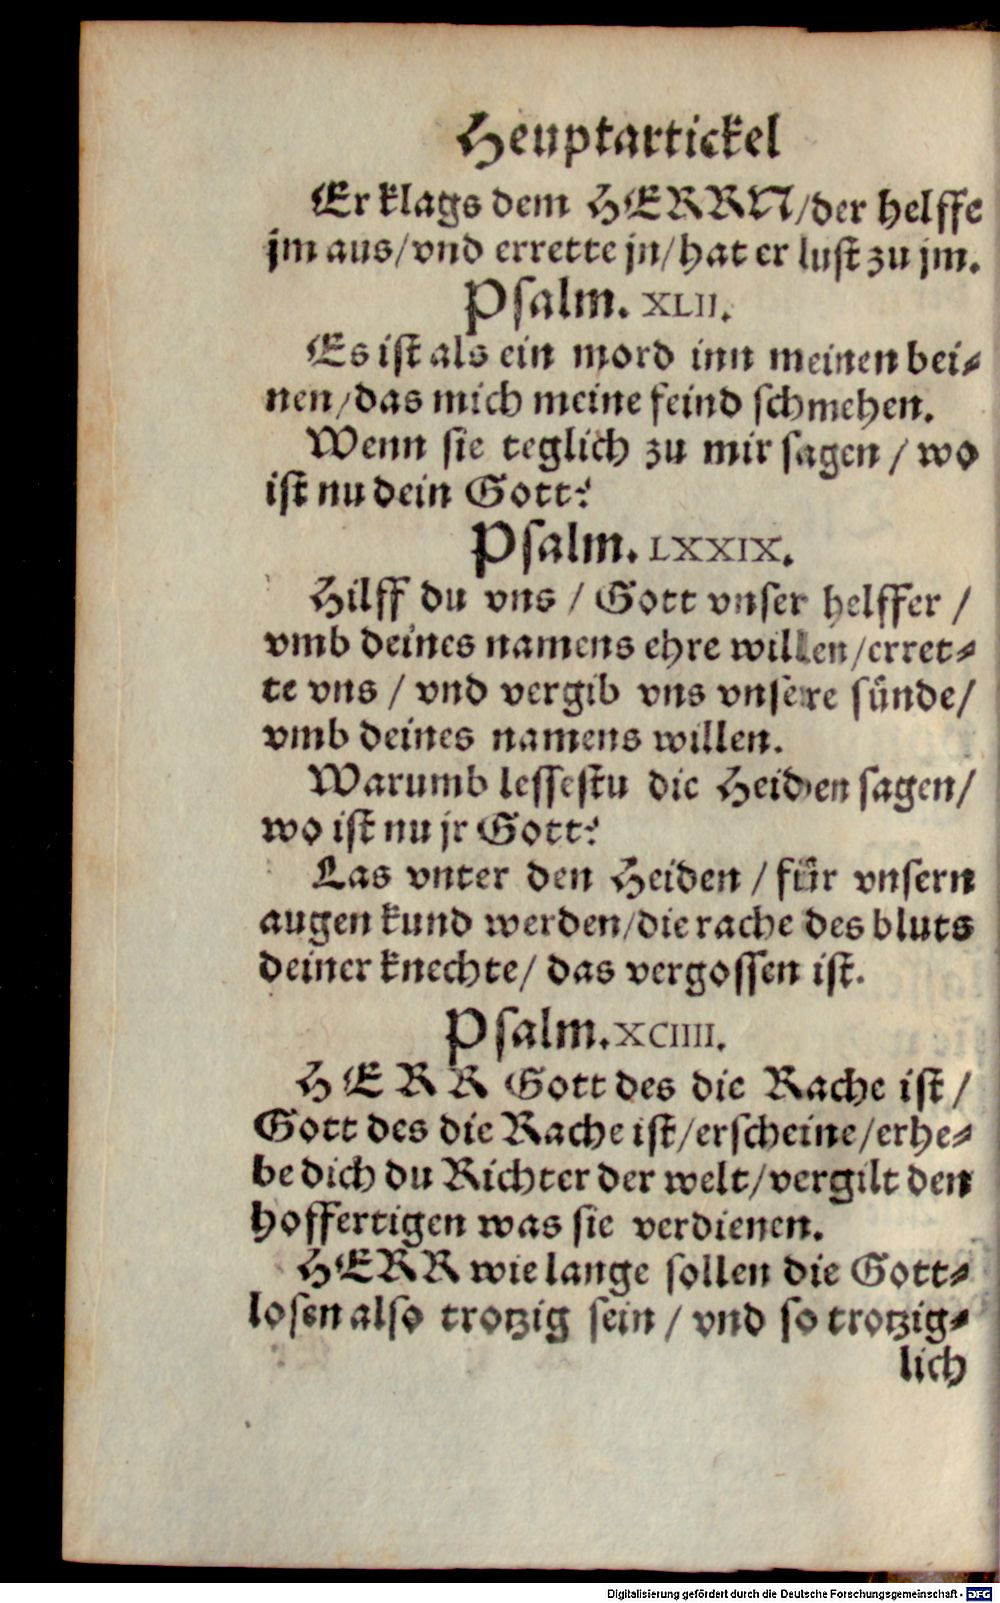 Heuptartickel
Er klags dem HERRN/der helffe
jm aus/vnd errette jn/hat er lust zu jm.
Psalm. XLII.
Es ist als ein mord inn meinen bei⸗
nen/das mich meine feind schmehen.
Wenn sie teglich zu mir sagen / wo
ist nu dein Gott?
Psalm. LXXIX.
Hilff du vns / Gott vnser helffer /
vmb deines namens ehre willen/erret⸗
te vns / vnd vergib vns vnsere sünde/
vmb deines namens willen.
Warumb lessestu die Heiden sagen/
wo ist nu jr Gott?
Las vnter den Heiden / für vnsern
augen kund werden/die rache des bluts
deiner knechte/ das vergossen ist.
Psalm. XCIIII.
HERR Gott des die Rache ist /
Gott des die Rache ist/erscheine/erhe⸗
be dich du Richter der welt/vergilt den
hoffertigen was sie verdienen.
HERR wie lange sollen die Gott⸗
losen also trotzig sein / vnd so trotzig⸗
lich
Digitalisierung gefördert durch die Deutsche Forschungsgemeinschaft - DFG